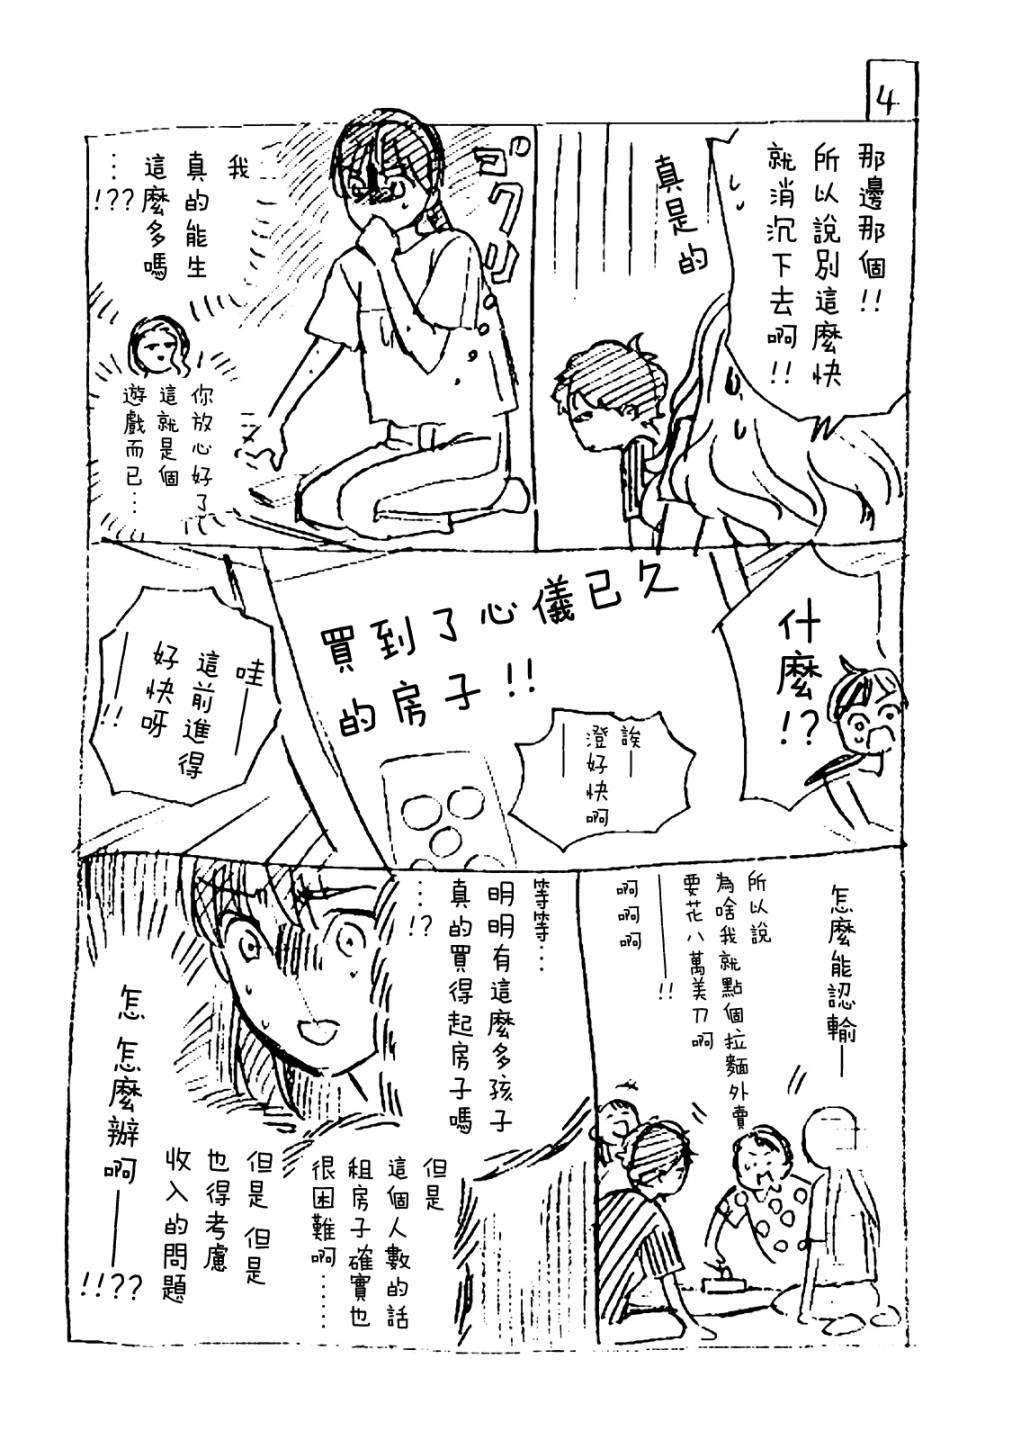 4
那邊那個!!
所以說別這麼快
就消沉下去啊!!
真是的
ゴクリ
我
真的能生
這麼多嗎
…!??
你放心好了
這就是個
遊戲而已…
什麼!?
買到了心儀已久
的房子!!
誒—
澄好快啊—
哇—
這前進得
好快呀—!!
怎麼能認輸—
所以說
為啥我就點個拉麵外賣
要花八萬美刀啊—!!
啊啊啊
等等…
明明有這麼多孩子
真的買得起房子嗎
…!?
但是
這個人數的話
租房子確實也
很困難啊……
但是但是
也得考慮
收入的問題
怎怎麼辦啊—!!??